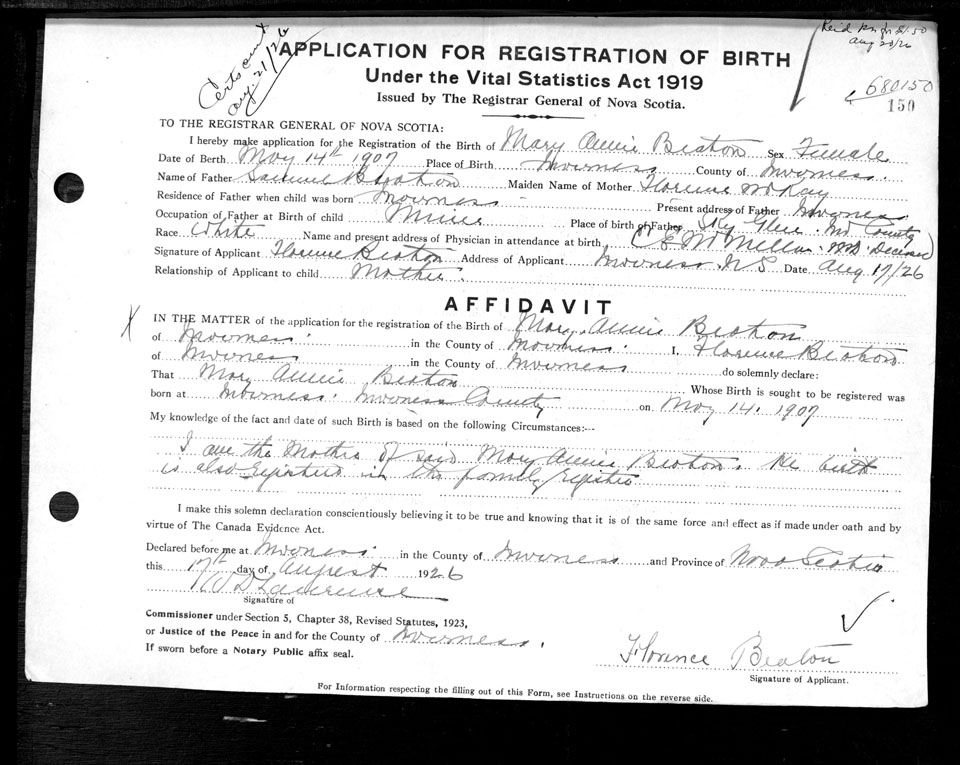 Certs sent
Aug. 21/26
$1.50
Aug 20/26
680150
150
APPLICATION FOR REGISTRATION OF BIRTH
Under the Vital Statistics Act 1919
Issued by The Registrar General of Nova Scotia.
TO THE REGISTRAR GENERAL OF NOVA SCOTIA:
I hereby make application for the Registration of the Birth of Mary Annie Beaton Sex Female
Date of Berth May 14th 1907 Place of Birth Inverness County of Inverness.
Name of Father Samuel Beaton Maiden Name of Mother Florence McKay
Residence of Father when child was born Inverness Present address of Father Inverness
Occupation of Father at Birth of child Miner Place of birth of Father Glen. Inv County
Race White Name and present address of Physician in attendance at birth (C E McMillan. MD. Deceased)
Signature of Applicant Florence Beaton Address of Applicant Inverness N S Date Aug 17/26
Relationship of Applicant to child Mother.
AFFIDAVIT
X IN THE MATTER of the application for the registration of the Birth of Mary Annie Beaton
of Inverness in the County of Inverness. I, Florence Beaton
of Inverness in the County of Inverness do solemnly declare:
That Mary Annie Beaton Whose Birth is sought to be registered was
born at Inverness. Inverness County on May 14. 1907
My knowledge of the fact and date of such Birth is based on the following Circumstances:--
I am the Mother of said Mary Annie Beaton. Her birth
is also registered in the family register
I make this solemn declaration conscientiously believing it to be true and knowing that it is of the same force and effect as if made under oath and by
virtue of The Canada Evidence Act.
Declared before me at Inverness in the County of Inverness and Province of Nova Scotia
this 17th day of August 1926
D Lawrence
Signature of
Commissioner under Section 5, Chapter 38, Revised Statutes, 1923,
or Justice of the Peace in and for the County of Inverness.
If sworn before a Notary Public affix seal.
Florence Beaton
Signature of Applicant.
For Information respecting the filling out of this Form, see Instructions on the reverse side.